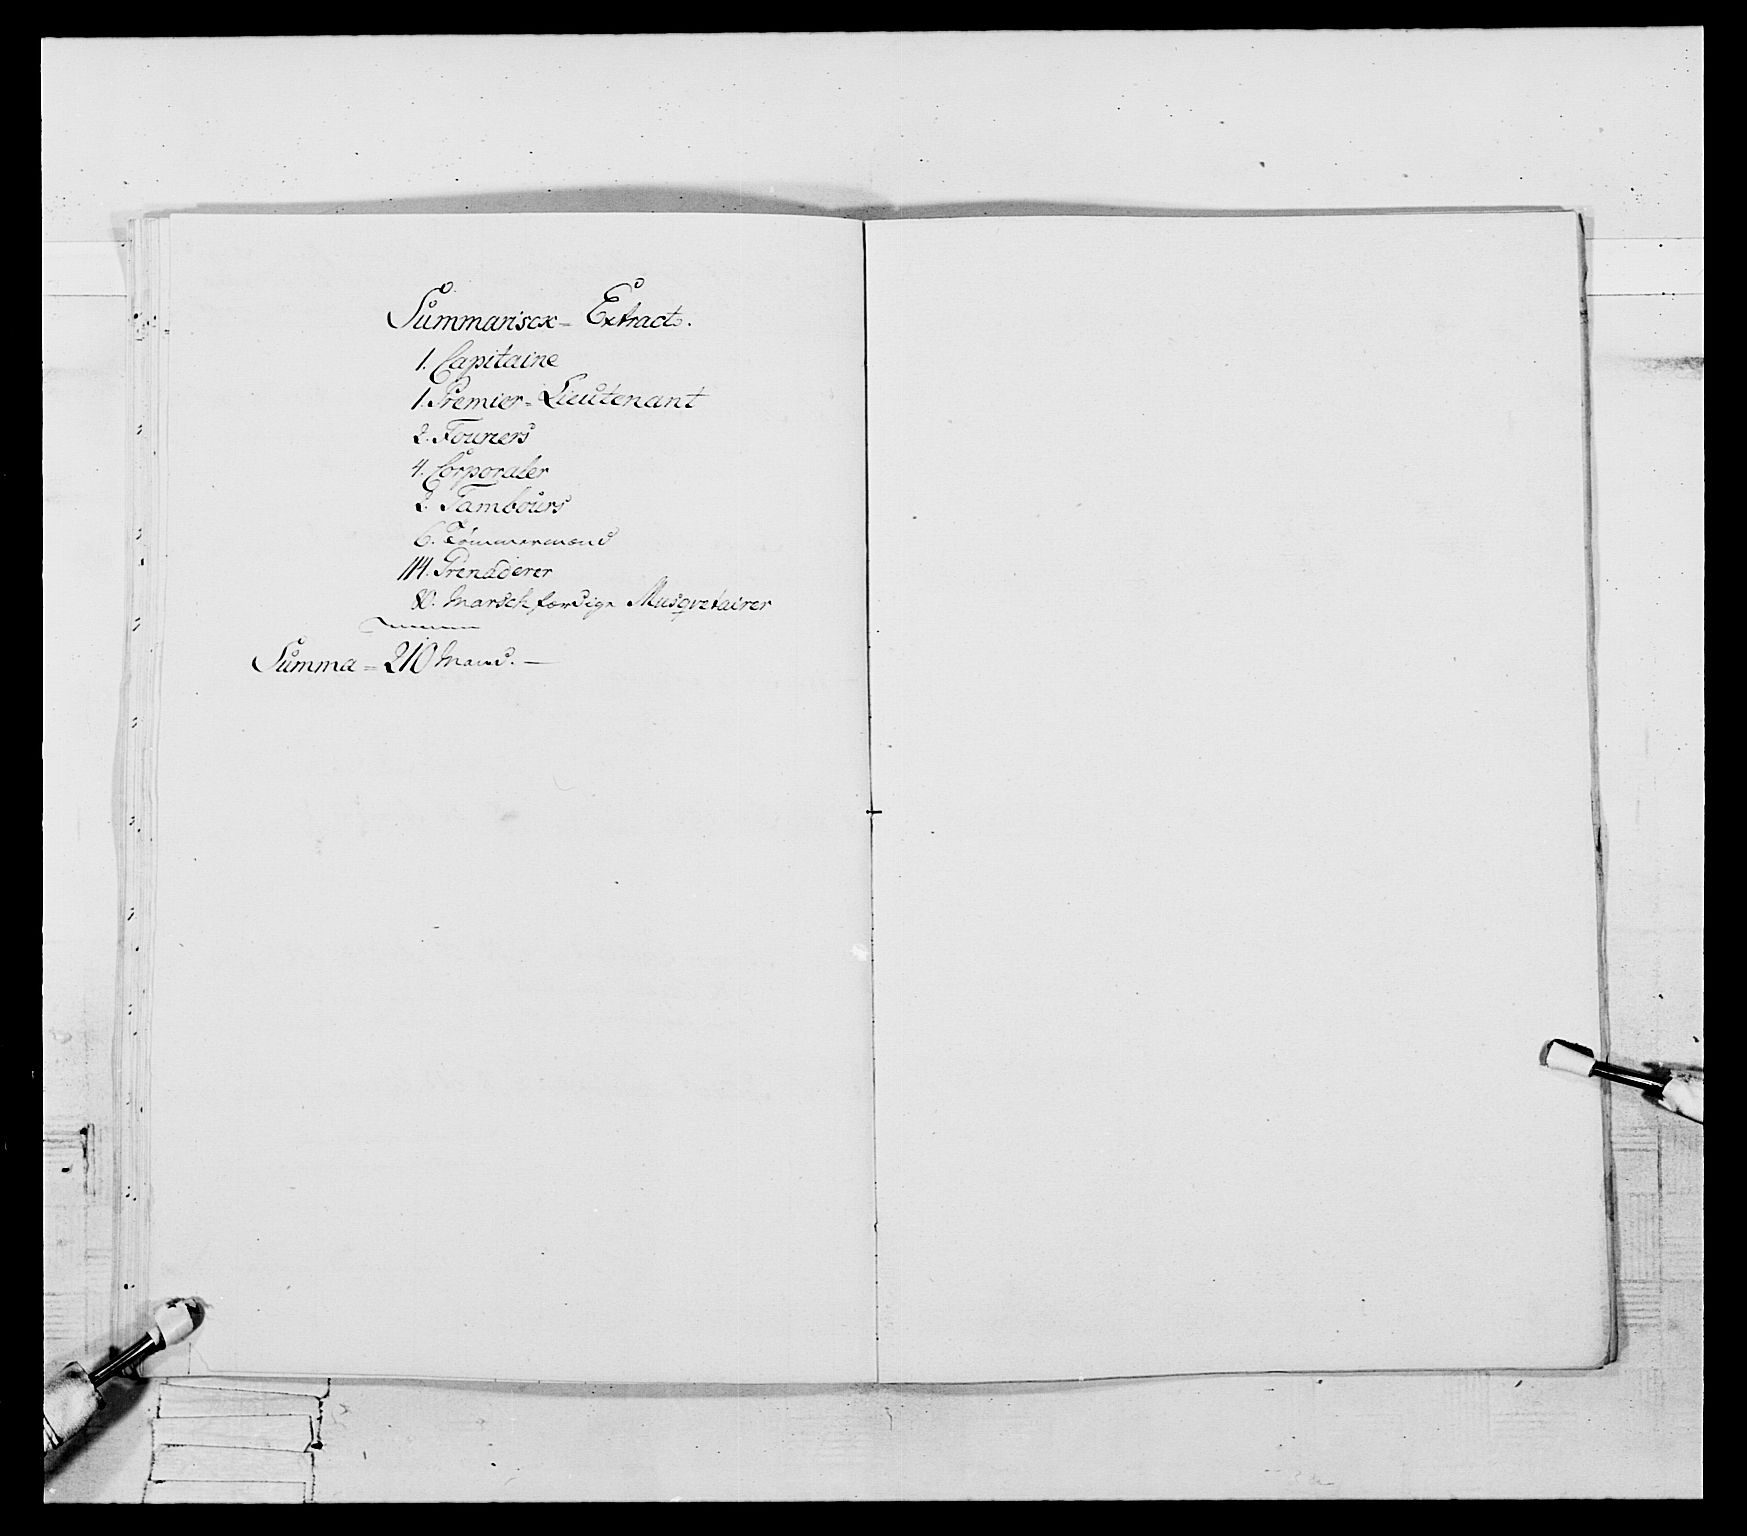 Summarisck- Extract.
1. Capitaine
1. Premier- Lieutenant
2. Fouriers
4. Corporaler
2. Tambours
6. Tømmermænd
114. Grenaderer
80. Marschfærdige Musqvetairer
Summa = 210 Mand. —